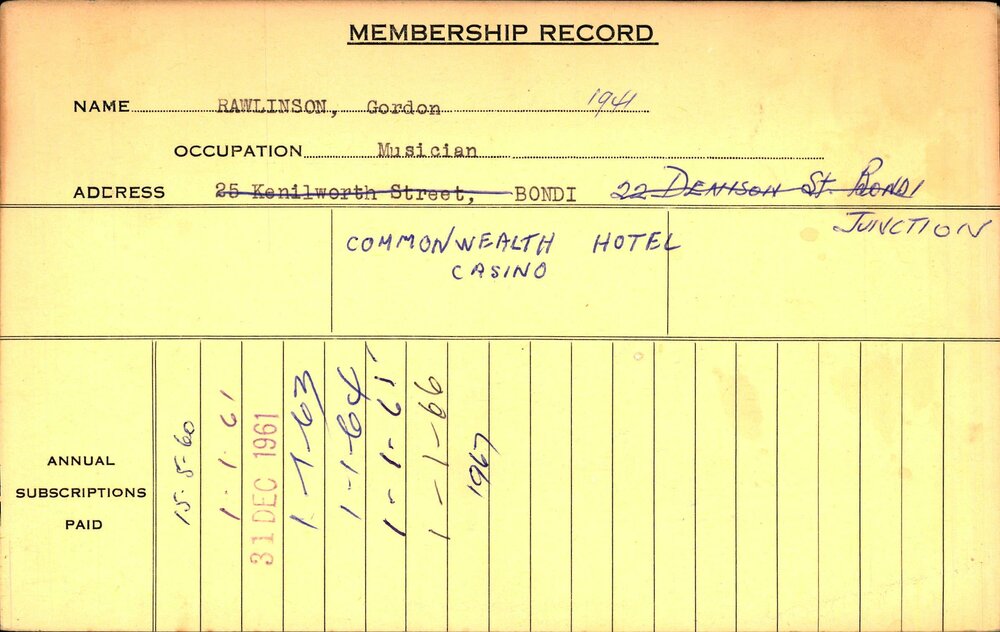 MEMBERSHIP RECORD
NAME RAWLINSON, Gordon 1941
OCCUPATION Musician
ADDRESS 25 Kenilworth Street, BONDI 22 DENISON St. BONDI
JUNCTION
COMMONWEALTH HOTEL
CASINO
ANNUAL
SUBSCRIPTIONS
PAID
15-5-60
1.1.61
31 DEC 1961
1-1-63
1-1-64
1-1-65
1-1-66
1967